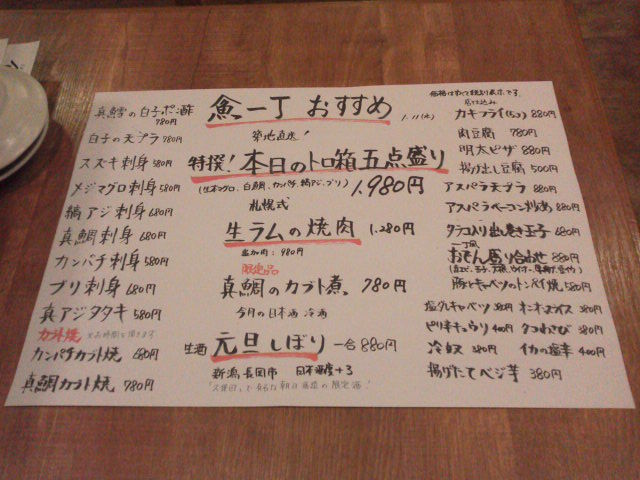 真鱈の白子ポン酢
780円
白子の天プラ 780円
スズキ刺身 580円
メジマグロ刺身 580円
縞アジ刺身 680円
真鯛刺身 680円
カンパチ刺身 580円
ブリ刺身 680円
真アジタタキ 580円
カブト焼 お時間を頂きます
カンパチカブト焼 680円
真鯛カブト焼 780円
魚一丁 おすすめ
1.11(水)
築地直送!
特撰!本日のトロ箱五点盛り
(生本マグロ、白鯛、カンパチ、縞アジ、ブリ) 1.980円
札幌式
生ラムの焼肉 1.280円
追加肉:980円
限定品
真鯛のカブト煮 780円
今月の日本酒 冷酒
生酒 元旦しぼり 一合 880円
新潟 長岡市 日本酒度+3
「久保田」で有名な朝日酒造の限定酒!
価格はすべて税別表示です。
店仕込み
カキフライ(5コ) 880円
肉豆腐 780円
明太ピザ 880円
揚げ出し豆腐 500円
アスパラ天プラ 880円
アスパラベーコン炒め 880円
タラコ入り出し巻き玉子 680円
一丁風
おでん盛り合わせ 880円
豚とキャベツのトンペイ焼 580円
塩ダレキャベツ 380円 オニオンスライス 380円
ピリ辛キュウリ 400円 タコわさび 380円
冷奴 380円 イカの塩辛 400円
揚げたてベジ芋 380円